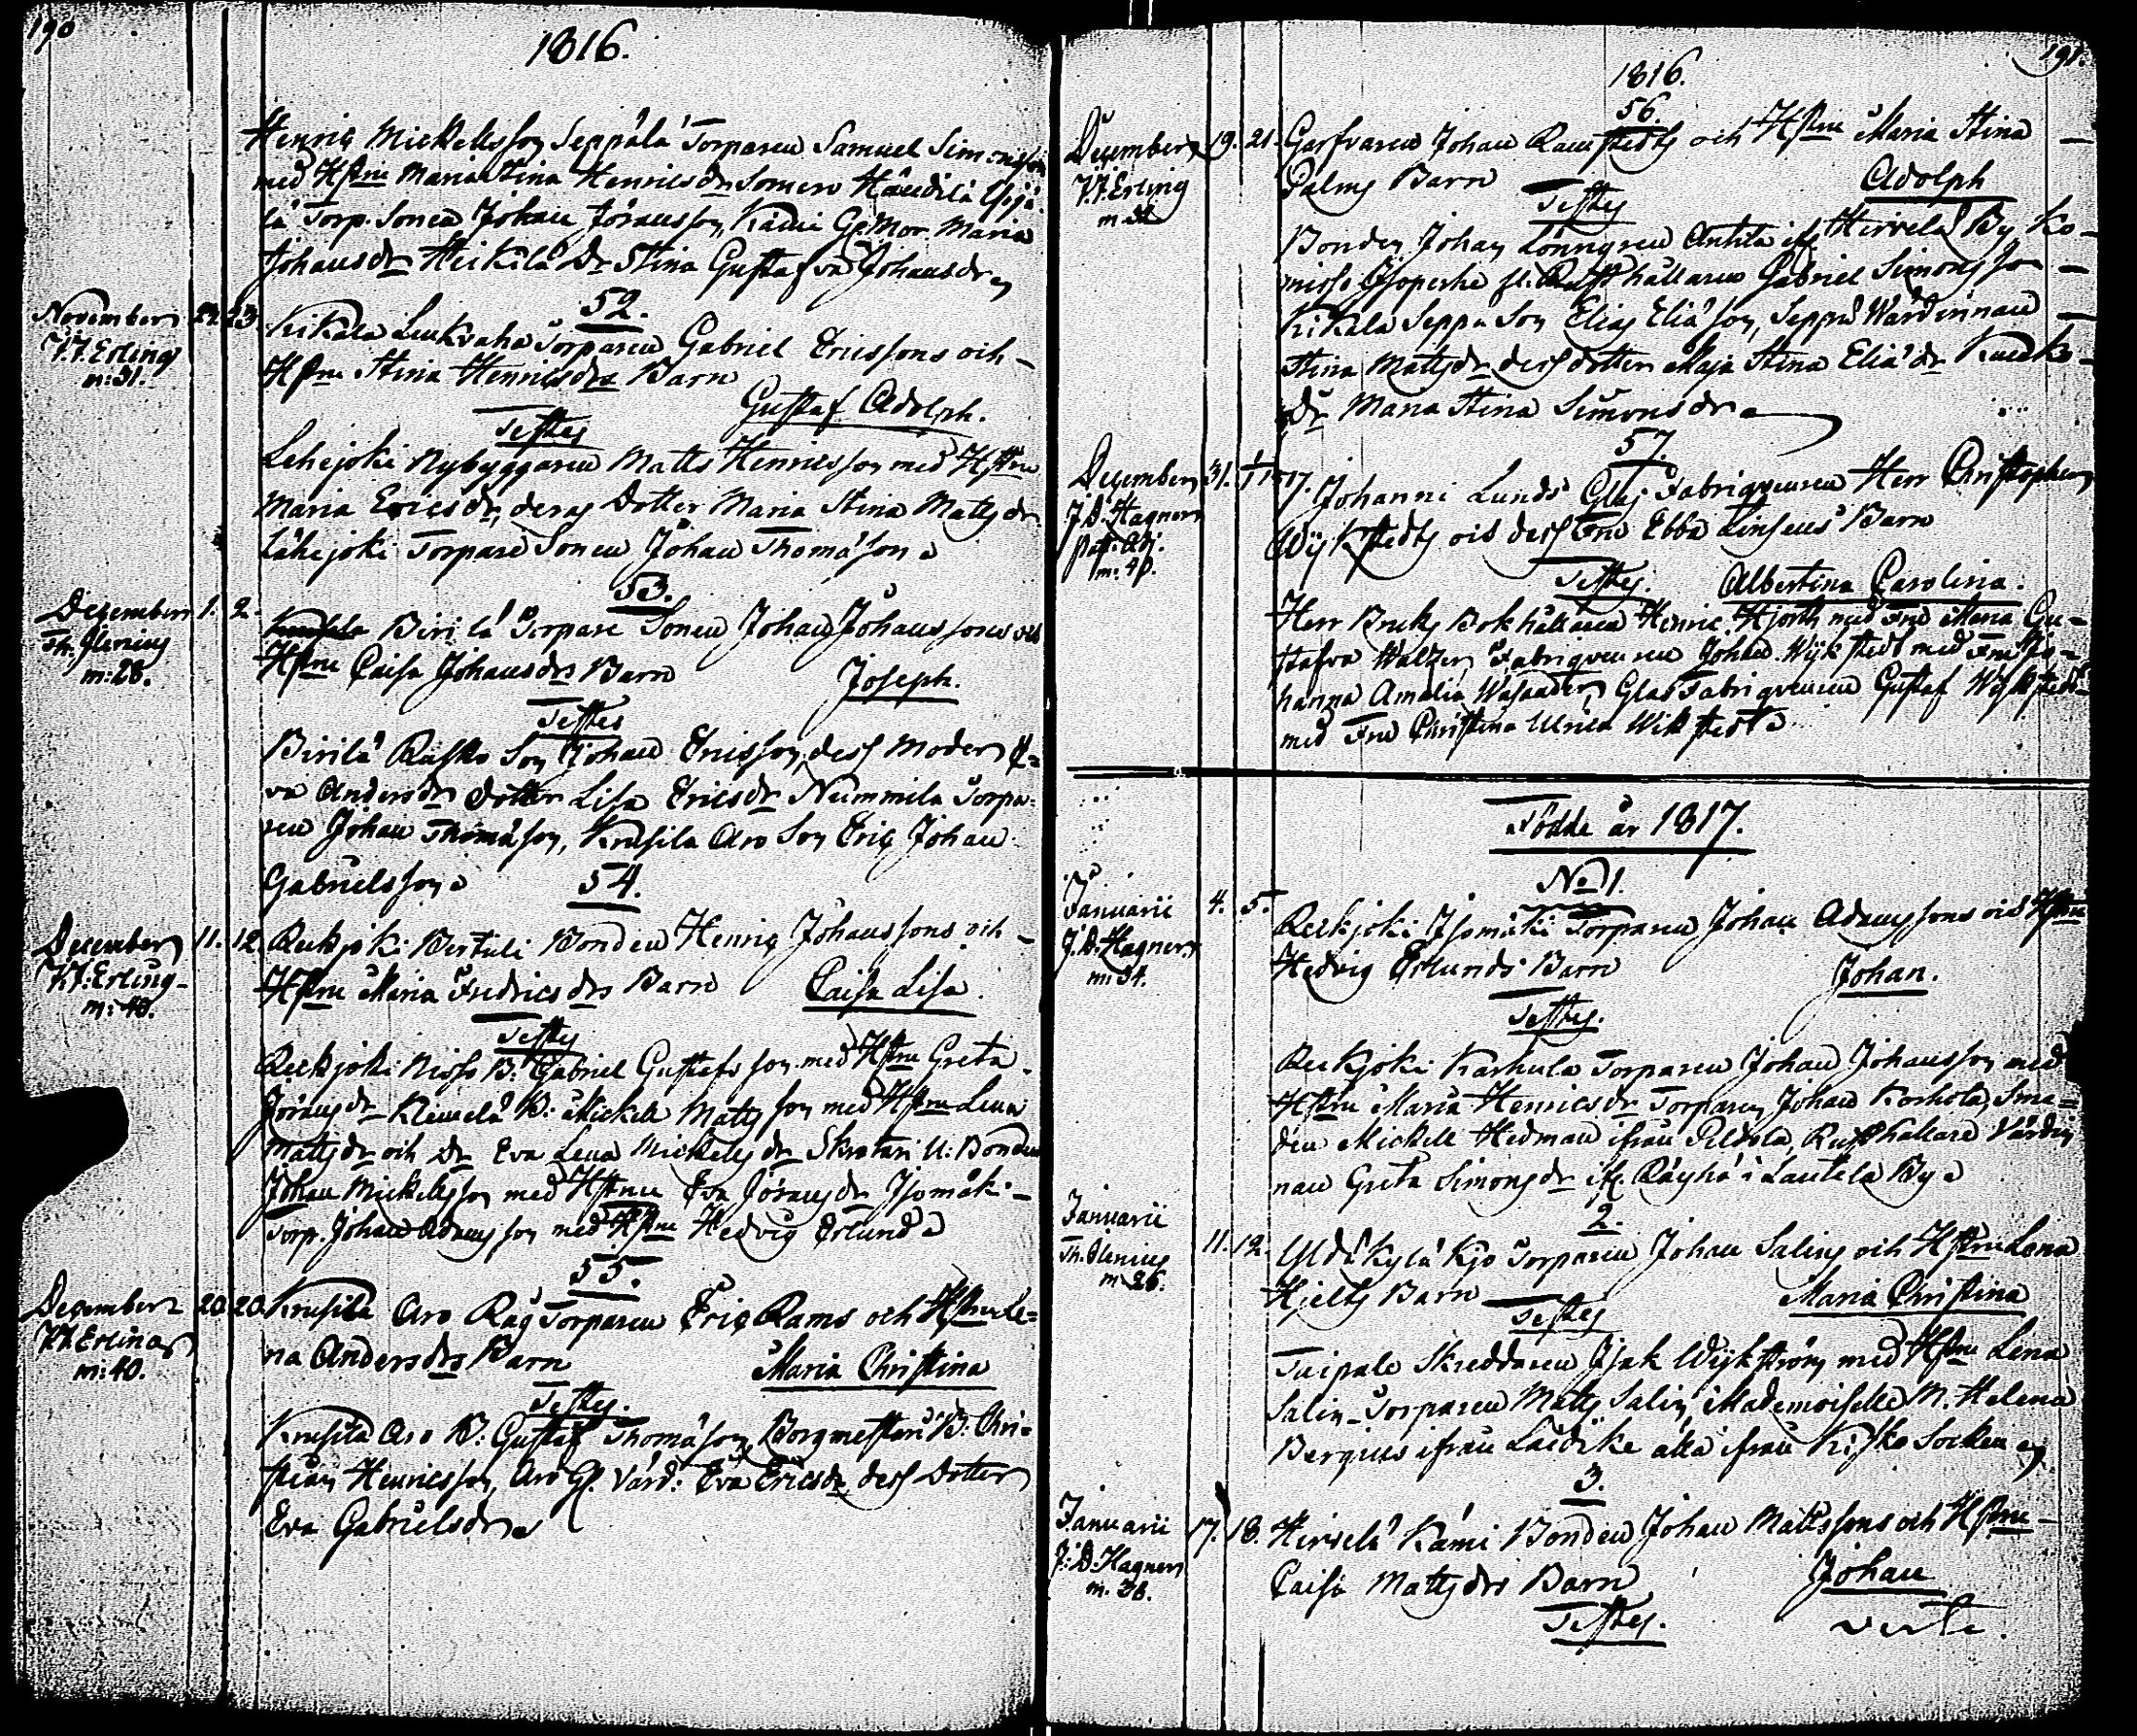 190
1816.
Henric Mickelsson Seppälä Torparen Samuel Simonsson
med Hstru Maria Stina Henricsdr Somero Häntilä
lä Torp. Sonen Johan Jöransson, Kämi Gl. Mor. Maria
Johansdr Heikilä Dr Stina Gustafva Johansdr
52.
November 22. 23. Kikala Torparen Gabriel Ericssons och
V.F. Erling Hstru Stina Henricsdrs Barn
m: 31. Gustaf Adolph.
Testes
Lehejoki Nybyggaren Matts Henricsson med Hstru
Maria Ericsdr, deras Dotter Maria Stina Mattsdr
Lähejoki Torpare Sonen Johan Thomasson
53.
December 1. 2. Birilä Torpare Sonen Johan Johanssons och
Th. Glenius Hstru Caisa Johansdrs Barn Joseph.
m: 28.
Testes
Birilä Rusko Son Johan Ericsson, dess Moder E-
va Andersdr Dotter Lisa Ericsdr Nummila Torpa-
ren Johan Thomasson, Krusila Aro Son Eric Johan
Gabrielsson
54.
December 11. 12. Reckjoki Bertuli Bonden Henric Johanssons och
V.F. Erling Hstru Maria Fredricsdrs Barn Caisa Lisa.
m: 40.
Testes
Reckjoki Nisso B: Gabriel Gustafsson med Hstru Greta
Jöransdr Klemelä B: Mickel Mattsson med Hstru Lena
Mattsdr och Dr Eva Lena Mickelsdr Skratari U: Bonden
Johan Mickelsson med Hstru Eva Jöransdr Isomäki
Torp. Johan Adamsson med Hstru Hedvig Erlund
55.
December 20. 20. Krusila Aro Råg Torparen Eric Rams och Hstru Le-
V.F. Erling na Andersdrs Barn Maria Christina
m: 40.
Testes.
Krusila Aro B: Gustaf Thomasson, Borgmestari B: Chri-
stian Henricsson, Aro Gl. Värd: Eva Ericsdr, dess Dotter
Eva Gabrielsdr
191.
1816.
56.
December 19. 21. Garfvaren Johan Ramstedts och Hstru Maria Stina
V.F. Erling Palms Barn Adolph
Testes
Bonden Johan Lönngren Anttila ifr. Hirvelä By Ko-
nisto Rusthållaren Gabriel Simonsson
Kikala Seppä Son Elias Eliasson, Seppä Wärdinnan
Stina Mattsdr, dess dotter Maja Stina Eliædr
Dr Maria Stina Simonsdr
57.
December 31. 1/1 1817. Johanni Lunds Glas Fabriqueuren Herr Christopher
J.D. Hagner Wykstedts och dess Fru Ebba Linsens Barn
Past. Adj.
m: 40.
Testes. Albertina Carolina.
Herr Bruks Bokhållaren Henric Hjorth med Fru Maria Gu-
stafva Walzer, Fabriqueuren Johan Wykstedt med Fru Jo-
hanna Amalia Glas Fabriqueuren Gustaf Wykstedt
med Fru Christina Ulrica Wikstedt
Födde år 1817.
No 1.
Januarii 4. 5. Reckjoki Isomäki Torparen Johan Adamssons och Hstru
J.D. Hagner. Hedvig Erlunds Barn Johan.
m: 34.
Testes.
Reckjoki Karhula Torparen Johan Johansson med
Hstru Maria Henricsdr Torparen Johan Korhola, Sme-
den Mickel Hedman ifrån Peldola, Rusthållare Värdin-
nan Greta Simonsdr ifr. Räyhä i Lautela By
2.
Januarii 11. 12. Yldäkylä Kjo Torparen Johan Salins och Hstru Lena
Th. Glenius Hjelts Barn Maria Christina
m: 26.
Testes
Taipale Skreddaren Isak Wykström med Hstru Lena
Salin, Torparen Matts Salin, Mademoiselle M. Helena
Bergius ifrån Laidike alla ifrån Kisko Socken
3.
Januarii 17. 18. Hirvelä Kämi Bonden Johan Mattssons och Hstru
J.D. Hagner Caisa Mattsdrs Barn Johan
m. 36.
Testes.
verte.